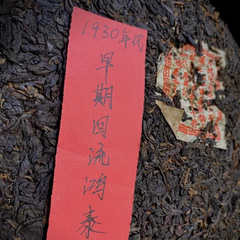 1930年代
早期回流鸿泰